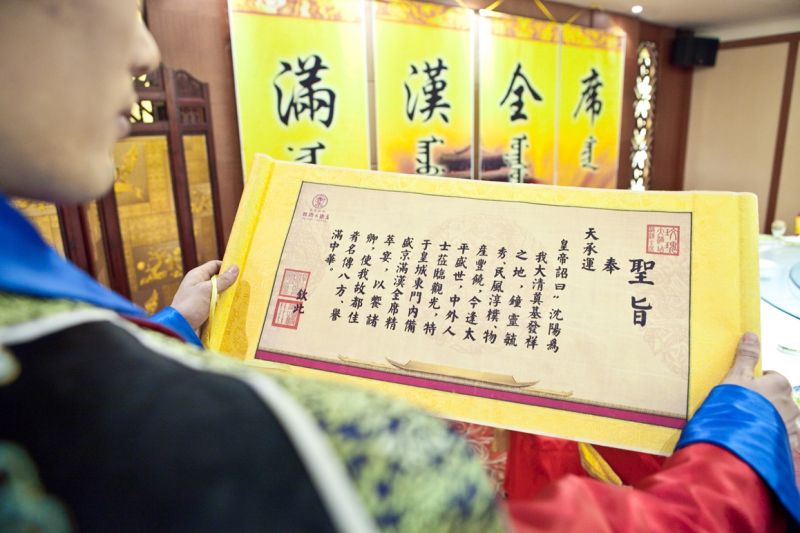 滿漢全席
聖旨
奉
天承運
皇帝詔曰“沈陽爲
我大清奠基發祥
之地，鐘靈毓
秀，民風淳樸，物
産豐饒，今逢太
平盛世，中外人
士莅臨觀光，特
于皇城東門内備
盛京滿漢全席精
萃宴，以饗諸
卿，使我故都佳
肴名傳八方、譽
滿中華。
欽此